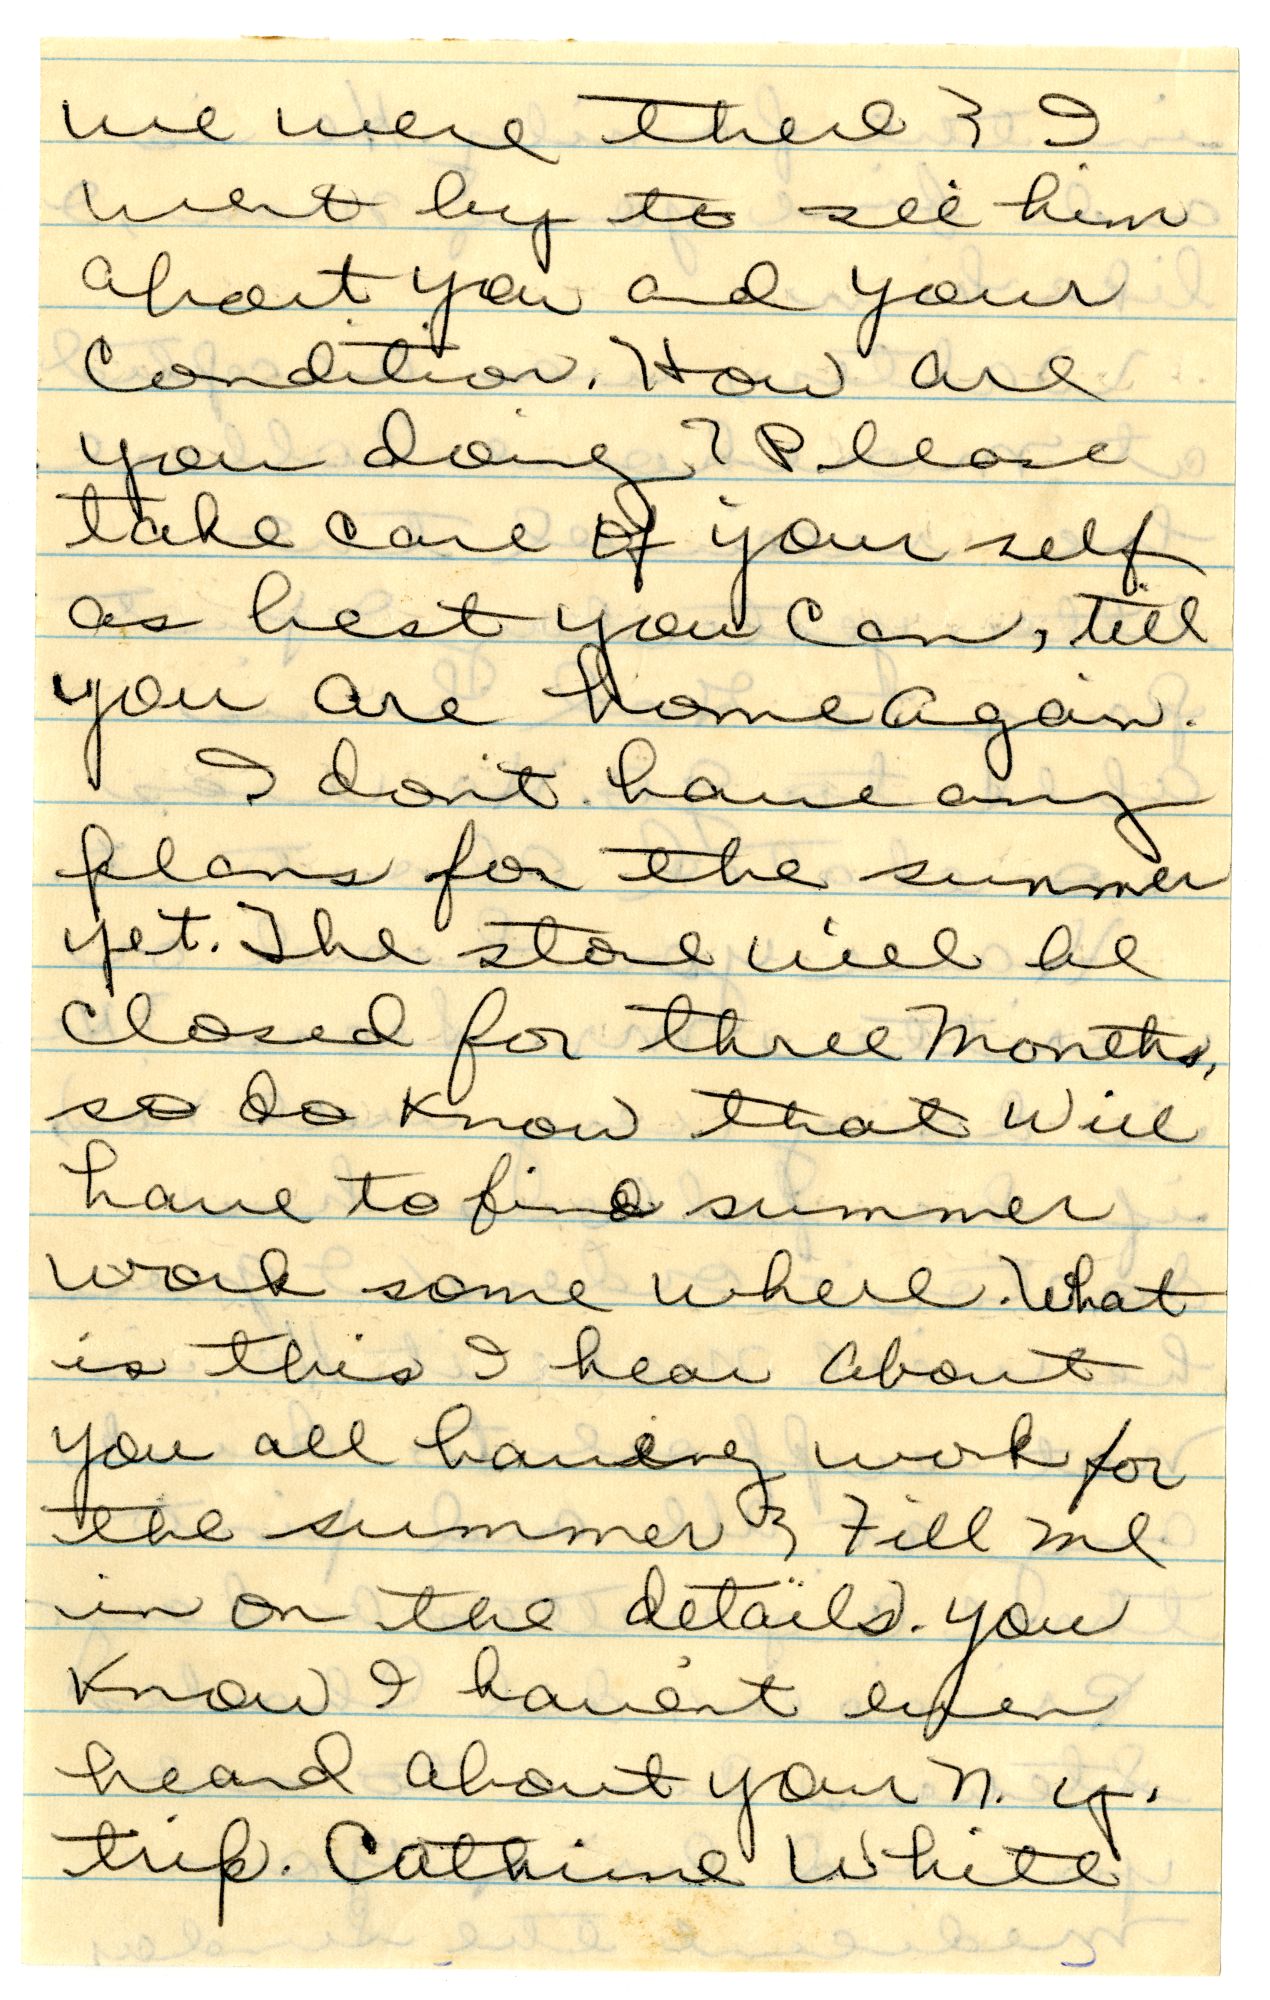 we were there & I
went by to see him
about you and your
Condition. How are
you doing? Please
take care of your self
as best you can, till
you are home again.
I don't have any
plans for the summer
yet. The store will be
closed for three months,
so do know that will
have to find summer
work some where. What
is this I hear about
you all having work for
the summer & Fill me
in on the details. you
know I haven't even
heard about your N. Y.
trip. Cathrine White